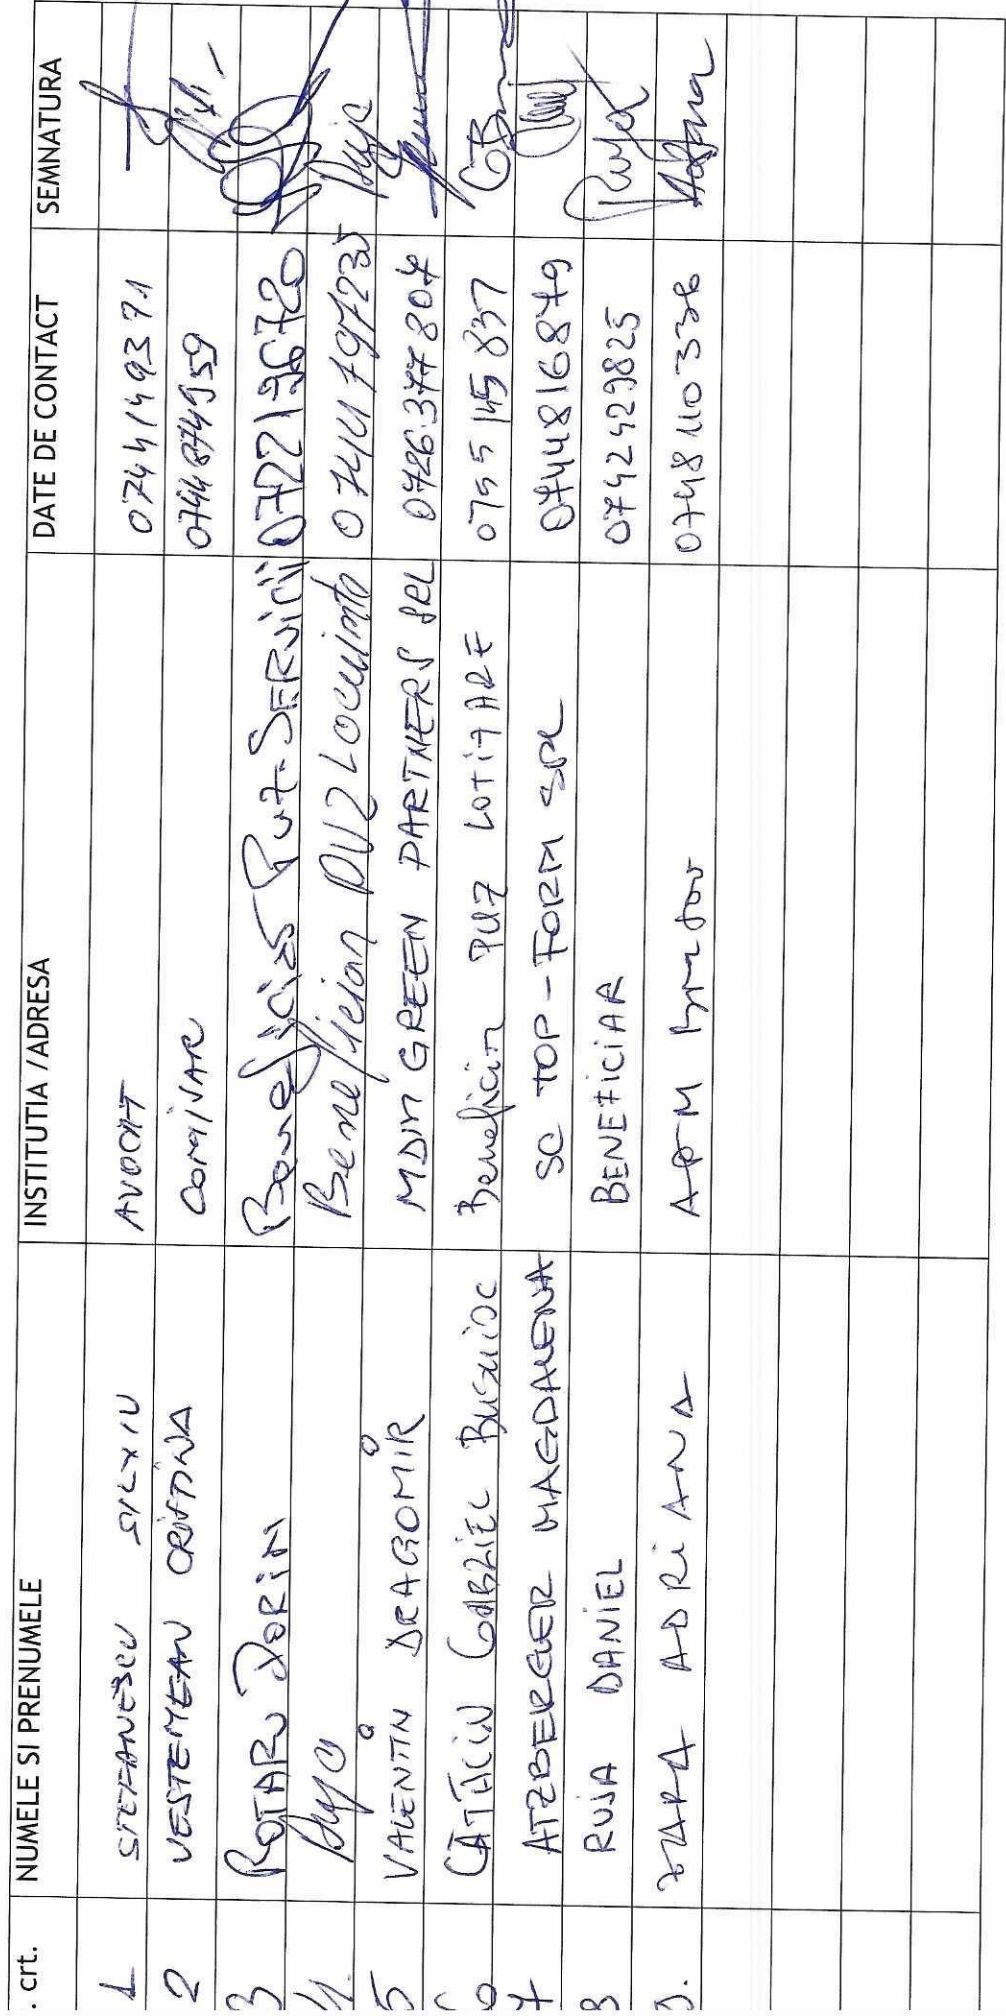 . crt. NUMELE SI PRENUMELE INSTITUTIA /ADRESA DATE DE CONTACT SEMNATURA
1 STEFANESCU SILVIU AVOCAT 0744149371
2 VESTEMEAN CRISTINA 0744674959
3 ROTARU DORIN Beneficiar Puz-SERVicii 0722196720
4. Beneficiar PUZ Locuinta 0744197235
5 VALENTIN DRAGOMIR MDM GREEN PARTNERS SRL 0726377804
6 CATALIN GABRIEL BUSUIOC Beneficiar PUZ LOTIZARE 0755145837
7 ATZBERGER MAGDALENA SC TOP-FORM SRL 0744816879
8 RUJA DANIEL BENEFICIAR 0742429825
9. ZARA ADRIANA APM Brasov 0748110336